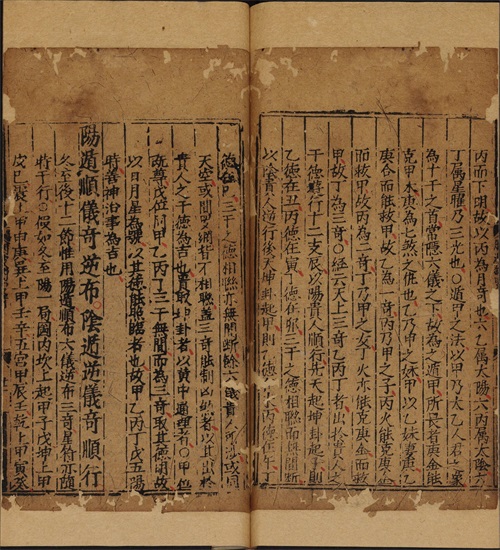 丙而下明故以丙為月奇○乙屬太陽六丙屬太陰六
丁屬星曜乃三光也○遁甲之法以甲乃太乙人君之象
為十干之首常隱六儀之下故為之遁甲所畏者庚金能
克甲木庚為七煞之仇也乙乃甲之妹甲以乙妹妻庚乙
庚合而能救甲故乙為一奇丙乃甲之子丙火能克庚金
而救甲故丙為二奇丁乃甲之女丁火亦能克庚金而救
甲故丁為三奇○經六天上三奇乙丙丁者出於貴人之
干德將行十二支辰以陽貴人順行先天起坤卦起甲則
乙德在丑丙德在寅丁德在卯三干之德相聯而無間斷
以陰貴人逆行後天坤卦起甲則乙德
三干之德相聯亦無間斷除六儀貴人所涉或同
天空或間羅網若不相聯蓋三奇能制凶煞者以其出於
貴人之干德為吉也貴取坤卦者以黃中通理有○甲位
既尊戊位開甲乙丙丁三干無間而為三奇取其德明故
以日月星為號以其德能照臨者也故甲乙丙丁戊五陽
時善神治事為吉也
陽遁順儀奇逆布○陰遁逆儀奇順行
冬至後十二節惟用陽遁順布六儀逆布三奇星符亦隨
時干行○假如冬至陽一局圖內坎上起甲子戊坤上甲
戌己震上甲申庚巽上甲午辛五宮甲辰壬乾上甲寅癸